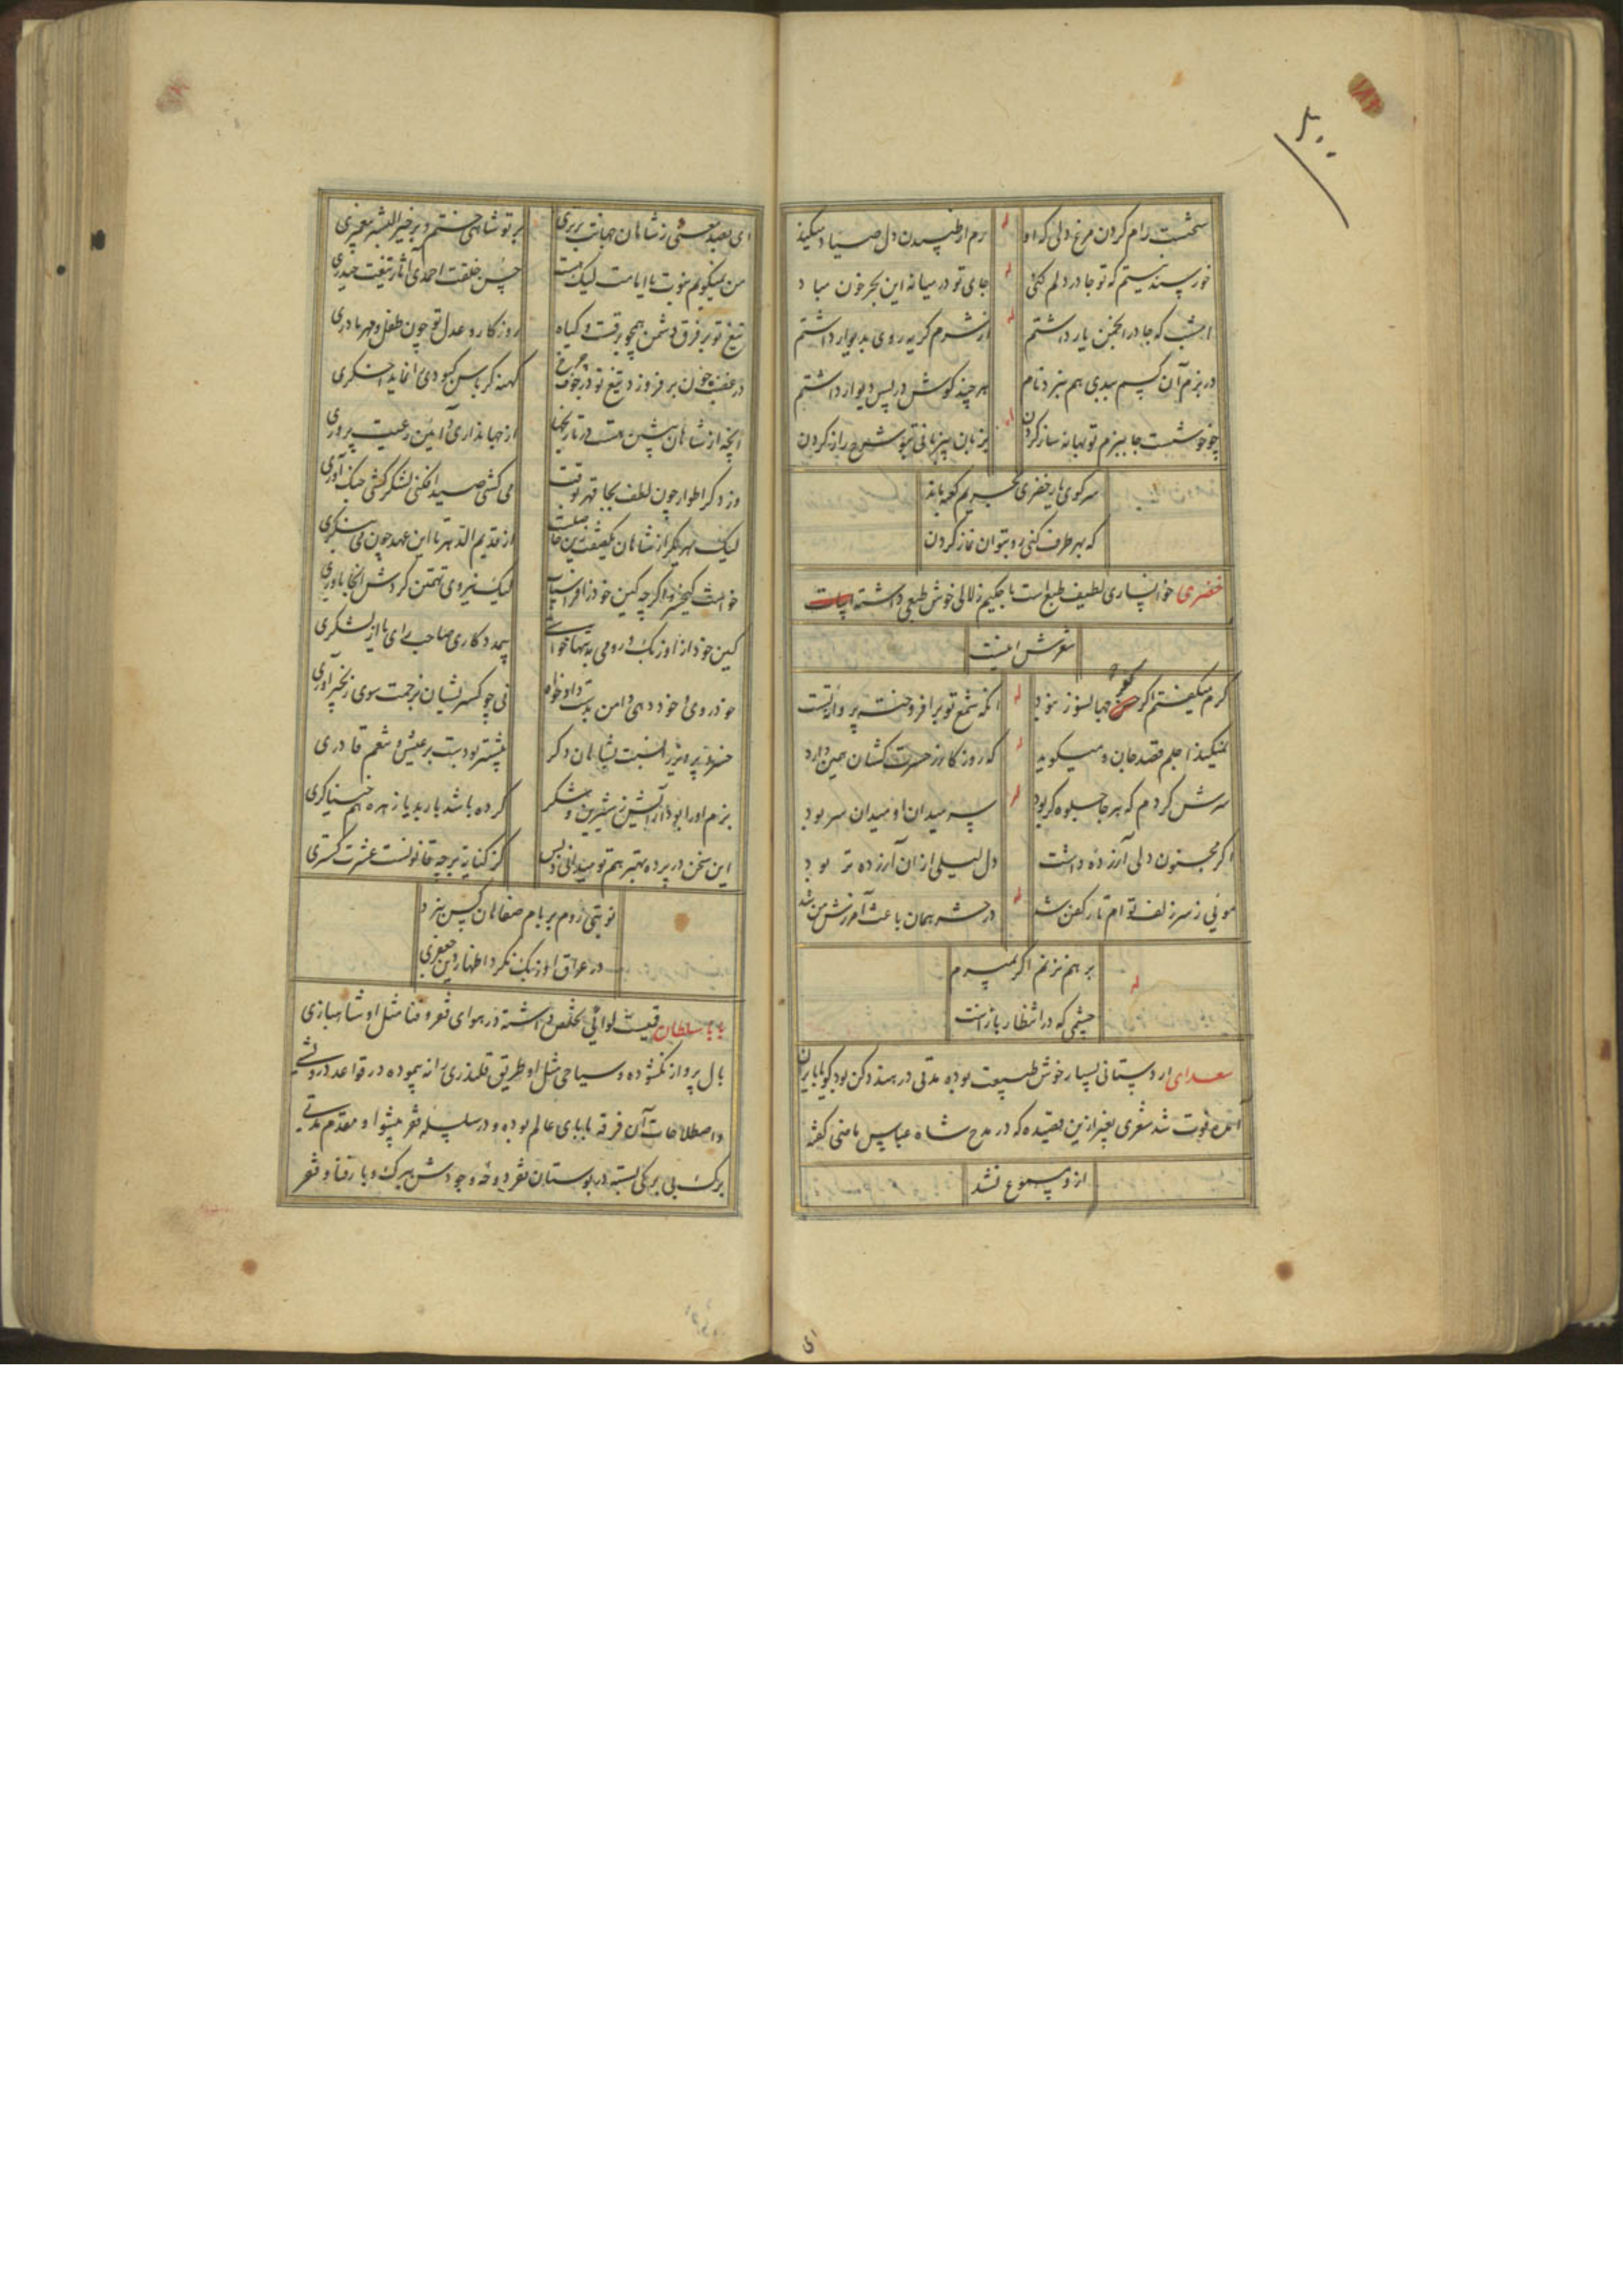 سختست رام کردن مرغ دلی که او رم از طپیدن دل صیاد میکند
خورسند نیستم که تو جا در دلم کنی جای تو در میانه این بحر خون مباد
امشب که جا در انجمن یار داشتم از شرم گریه روی بدیوار داشتم
در بزم آن کسم ببدی هم نبرد نام هر چند گوش در پس دیوار داشتم
چو خوشست جا ببزم تو بهانه ساز کردن بزبان بیزبانی بتو شرح راز کردن
سر کوی یار خضری بحریم کعبه ماند
که بهر طرف کنی رو بتوان نماز کردن
خضری خوانساری لطیف طبع است با حکیم زلالی خوش طبعی داشته
شعرش اینست
کرم میگفتم اگر جهانسوز نبود آنکه شمع تو برافروخت پروانه تست
نمیکند اجلم قصد جان و میگوید که روزگار ز حسرت کشان همین دارد
سرش کردم که هر جا جلوه گر بود سر میدان او میدان سر بود
اگر مجنون دلی آزرده داشت دل لیلی از آن آزرده تر بود
موئی ز سر زلف تو ام تار کفن شد در حشر همان باعث آمرزش من شد
بر هم نزنم اگر بمیرم
چشمی که در انتظار بازست
سعدای اردستانی بسیار خوش طبیعت بوده مدتی در هند و دکن بود گویا بایران
آمده فوت شد شعری بغیر ازین قصیده که در مدح شاه عباس ماضی گفته
ازو مسموع نشد
ای
ای بصد معنی ز شاهان جهانت برتری بر تو شاهی ختم و بر خیر البشر پیغمبری
من نمیگویم نبوت یا امامت لیک هست حسن خلقت احمدی آثار تیغت حیدری
تیغ تو بر فرق دشمن همچو برقست و گیاه روزگار و عدل تو چون طفل و مهر مادری
در غضب چون بر فروزد تیغ تو در جوف چرخ
آنچه از شاهان پیشین هست در تاریخها از جهانداری و آیین رعیت پروری
می کشی صید افکنی لشکر کشی جنگ آوری
وز دگر اطوار چون لطف بجا قهر بوقت
لیک هر یکرا ز شاهان از قدیم الدهر تا این عهد چون می بنگری
خواست کیخسرو اگر چه کین خود ز افراسیاب لیک نیروی تهمتن کردش آنجا یاوری
کین خود از اوزبک و رومی به تنها خواستی بیمددکاری صاحب رای یا از لشکری
خود روی و خود دهی دامن بدست داد خواه نی چو کسری شان بزحمت سوی زنجیر آوری
خسرو پرویز را نسبت بشاهان دگر بیشتر بودست بر عیش و تنعم قادری
بزم او را بود آرایش ز شیرین و شکر کرده باشد باربد یا زهره هم خنیاگری
این سخن در پرده بهتر هم تو میدانی و بس کز کنایه بر چه قانونست عشرت گستری
نوبتی روم بر بام صفاهان کس نزد
در عراق اوزبک نکرد اظهار دین جعفری
بابا سلطان قمیست لوائی تخلص می داشته در هوای فقر و فنا مثل او شاهبازی
بال پرواز نگشوده و سیاحی مثل او طریق قلندری را نه پیموده در قواعد درویشی
و اصطلاحات آن فرقه بابای عالم بوده و در سلسله فقر پیشوا و مقدم مدتی
برگ بی برگی بسته در بوستان فقر دوحه وجودش ببرگ و بار فنا و فقر